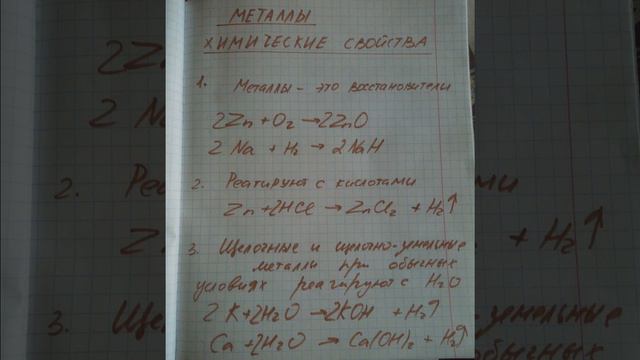 МЕТАЛЛЫ
ХИМИЧЕСКИЕ СВОЙСТВА
1. Металлы – это восстановители
2Zn + O₂ → 2ZnO
2 Na + H₂ → 2NaH
2. Реагируют с кислотами
Zn + 2HCl → ZnCl₂ + H₂↑
3. Щелочные и щелочно-земельные
металлы при обычных
условиях реагируют с H₂O
2 K + 2H₂O → 2KOH + H₂↑
Ca + 2H₂O → Ca(OH)₂ + H₂↑